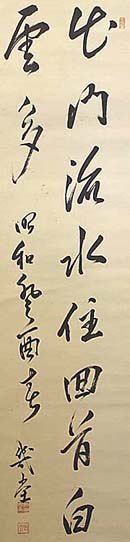 出門流水住回首白
雲多 昭和癸酉春